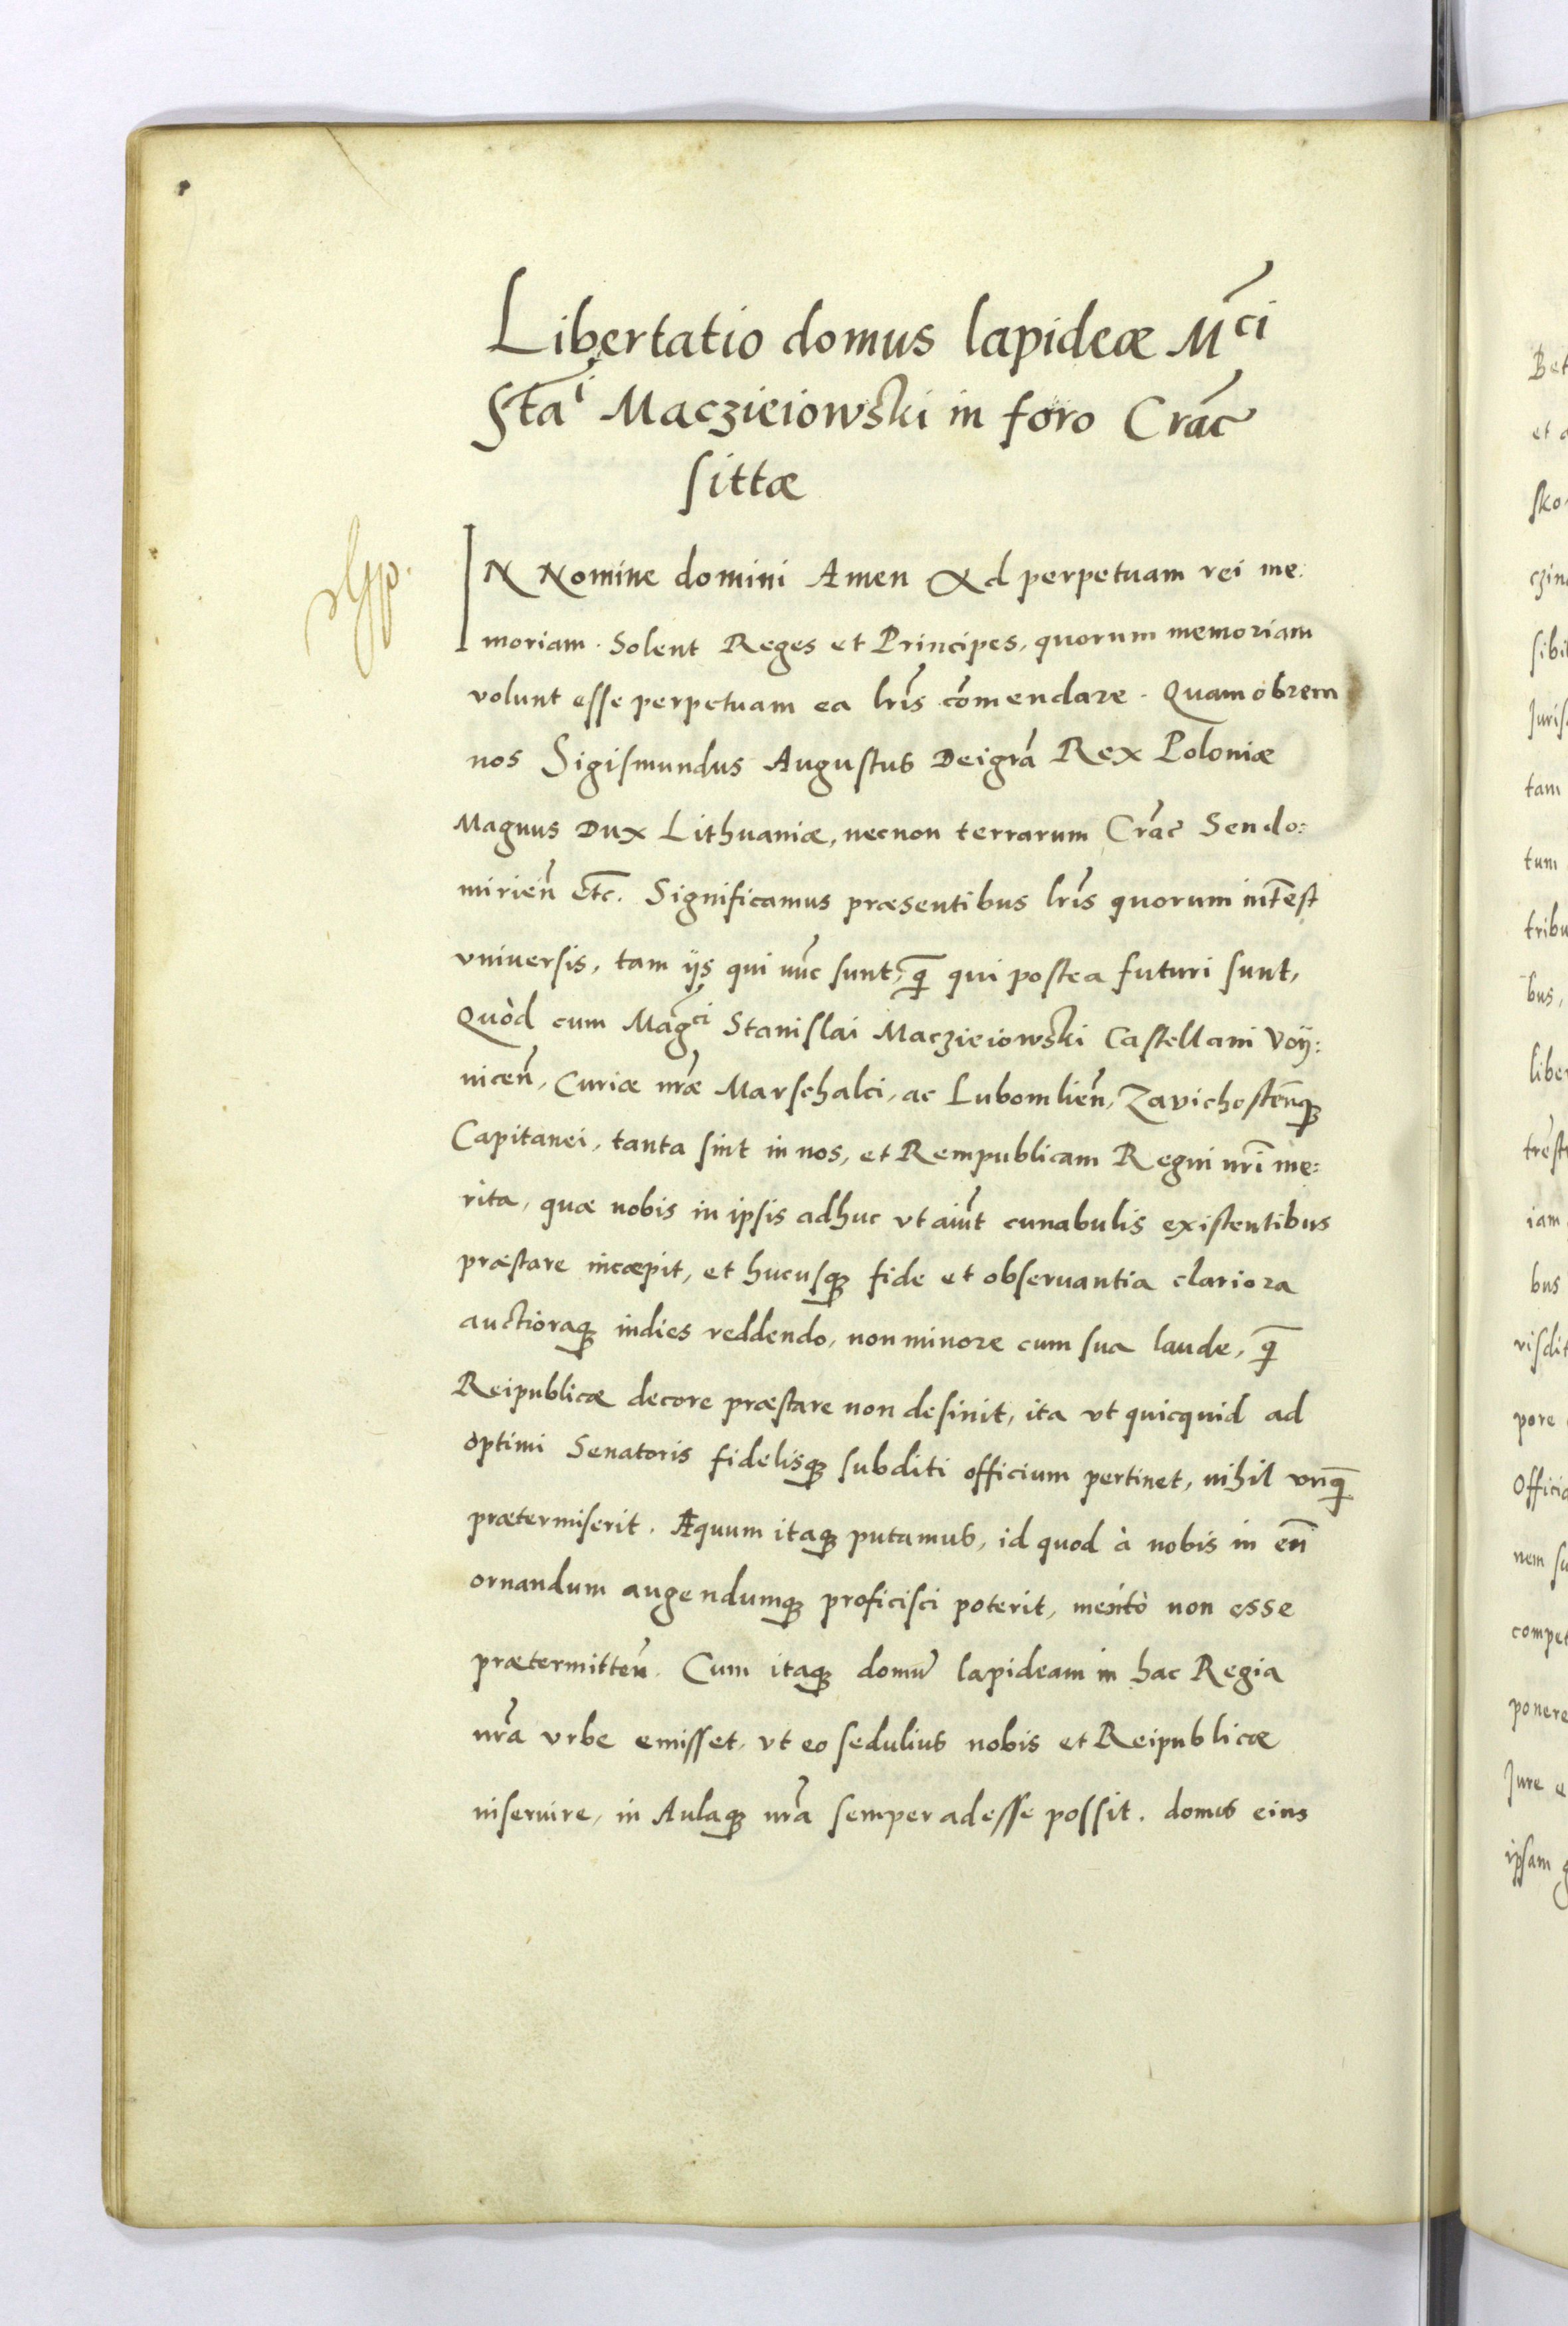 Libertatio domus lapideæ M̃ci
Stãi Macziejowski in foro Crac̃
sittæ
IN Nomine domini Amen Ad perpetuam rei me:
moriam. Solent Reges et Principes, quorum memoriam
volunt esse perpetuam ea lr̃is com̃endare. Quamobrem
nos Sigismundus Augustus Dei gr̃a Rex Poloniæ
Magnus Dux Lithuaniæ, necnon terrarum Crac̃ Sendo:
mirien̄ etc̄. Significamus præsentibus lr̃is quorum int̃est
vniversis, tam ijs qui nũc sunt, q̃ qui postea futuri sunt,
Quòd cum Mag̃ci Stanislai Macziejowski Castellani Voy:
nicen̄, Curiæ nr̃æ Marschalci, ac Lubomlien̄, Zavichosten̄q3
Capitanei, tanta sint in nos, et Rempublicam Regni nr̃i me:
rita, quæ nobis in ipsis adhuc vt aiũt cunabulis existentibus
præstare incæpit, et hucusq3 fide et obseruantia clariora
auctioraq3 indies reddendo, non minore cum sua laude, q̃
Reipublicæ decore præstare non desinit, ita vt quicquid ad
optimi Senatoris fidelisq3 subditi officium pertinet, nihil vnq̃
prætermiserit. Æquum itaq3 putamus, id quod à nobis in eũ
ornandum augendumq3 proficisci poterit, meritò non esse
prætermitten̄. Cum itaq3 domũ lapideam in hac Regia
nr̃a vrbe emisset, vt eo sedulius nobis et Reipublicæ
inseruire, in Aulaq3 nr̃a semper adesse possit. domus eius